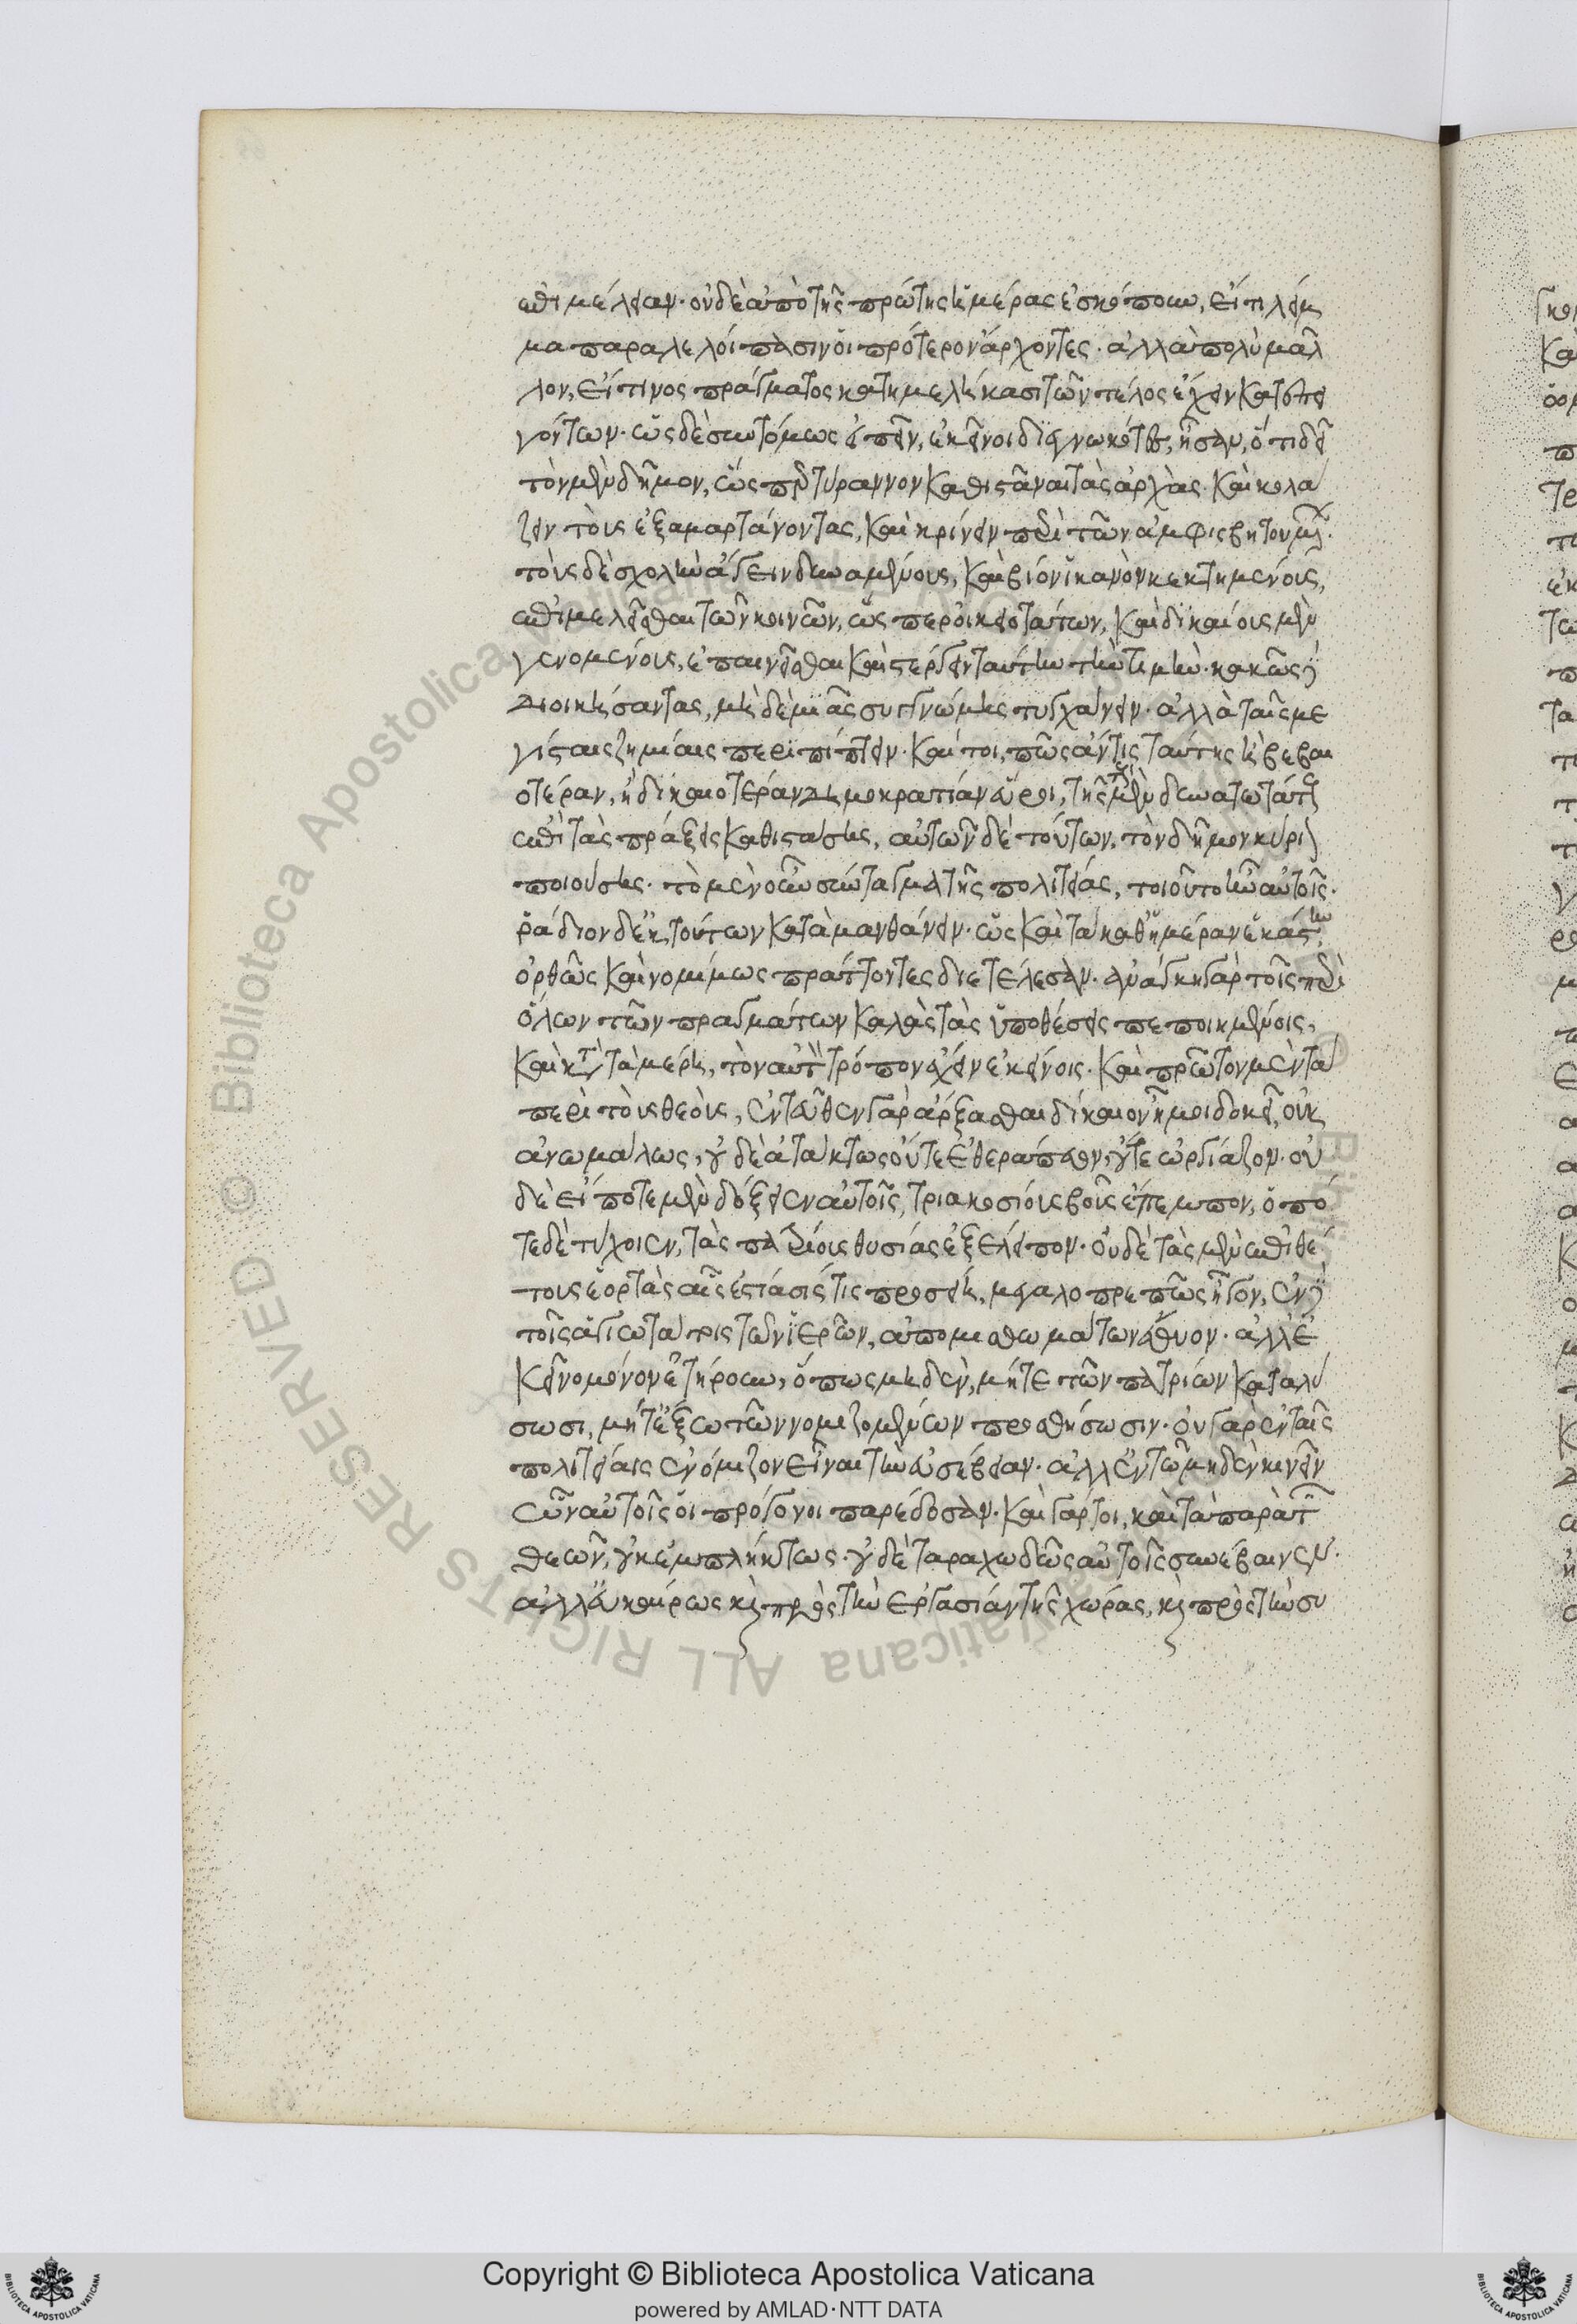 ἐπιμέλειαν· οὐδὲ ἀπὸ τῆς πρώτης ἡμέρας ἐσκόπουν, εἴ τι λῆμ
μα παραλελοίπασιν οἱ πρότερον ἄρχοντες· ἀλλὰ πολὺ μᾶλ
λον, εἴ τινος πράγματος κατημελήκασι τῶν τέλος ἔχειν κατεπει
γόντων· ὡς δὲ συντόμως εἰπεῖν, ἐκεῖνοι διεγνωκότες ἦσαν, ὅτι δεῖ
τὸν μὲν δῆμον, ὥσπερ τύραννον καθιστάναι τὰς ἀρχὰς· καὶ κολά
ζειν τοὺς ἐξαμαρτάνοντας, καὶ κρίνειν περὶ τῶν ἀμφισβητουμένων·
τοὺς δὲ σχολὴν ἄγειν δυναμένους, καὶ βίον ἱκανὸν κεκτημένους,
ἐπιμελεῖσθαι τῶν κοινῶν, ὥσπερ οἰκειοτάτων, καὶ δικαίοις μὲν
γενομένοις, ἐπαινεῖσθαι καὶ στέργειν ταύτην τὴν τιμὴν· κακῶς δὲ
διοικήσαντας, μὴ δὲ μιᾶς συγγνώμης τυγχάνειν· ἀλλὰ ταῖς με
γίσταις ζημίαις περιπίπτειν· καί τοι, πῶς ἄν τις ταύτης ἢ βεβαι
οτέραν, ἢ δικαιοτέραν δημοκρατίαν εὕροι, τῆς τοὺς μὲν δυνατωτάτους
ἐπὶ τὰς πράξεις καθιστάσης, αὐτῶν δὲ τούτων, τὸν δῆμον κύριον
ποιούσης· τὸ μὲν οὖν σύνταγμα τῆς πολιτείας, τοιοῦτο ἦν αὐτοῖς·
ῥάδιον δὲ ἐκ τούτων καταμανθάνειν· ὡς καὶ τὰ καθ' ἡμέραν ἑκάστην
ὀρθῶς καὶ νομίμως πράττοντες διετέλεσαν· ἀνάγκη γὰρ τοῖς περὶ
ὅλων τῶν πραγμάτων καλὰς τὰς ὑποθέσεις πεποιημένοις,
καὶ κατὰ τὰ μέρη, τὸν αὐτὸν τρόπον ἔχειν ἐκείνοις· καὶ πρῶτον μὲν τὰ
περὶ τοὺς θεοὺς, ἐντεῦθεν γὰρ ἄρξασθαι δίκαιον ἦ μοι δοκεῖ, οὐκ
ἀνωμάλως, οὐδὲ ἀτάκτως οὔτε ἐθεράπευον, οὔτε ὠργίαζον· οὐ
δὲ εἴ ποτε μὲν δόξειεν αὐτοῖς, τριακοσίους βοῦς ἔπεμπον, ὁπό
τε δὲ τύχοιεν, τὰς πατρίους θυσίας ἐξέλειπον· οὐδὲ τὰς μὲν ἐπιθέ
τους ἑορτὰς αἷς ἑστίασίς τις προσείη, μεγαλοπρεπῶς ἦγον, ἐν δὲ
τοῖς ἁγιωτάτοις τῶν ἱερῶν, ἀπομισθωμάτων ἔθυον· ἀλλ' ἐ
κεῖνο μόνον ἐτήρουν, ὅπως μηδὲν, μήτε τῶν πατρίων καταλύ
σωσι, μήτ' ἔξω τῶν νομιζομένων προσθήσωσιν· οὐ γὰρ ἐν ταῖς
πολιτείαις ἐνόμιζον εἶναι τὴν εὐσέβειαν· ἀλλ' ἐν τῷ μηδὲν κινεῖν
ὧν αὐτοῖς οἱ πρόγονοι παρέδοσαν· καὶ γάρ τοι, καὶ τὰ παρὰ τῶν
θεῶν, οὐκ ἐμπλήκτως· οὐδὲ ταραχωδῶς αὐτοῖς συνέβαινεν·
ἀλλ' εὐκαίρως καὶ πρὸς τὴν ἐργασίαν τῆς χώρας, καὶ πρὸς τὴν συ